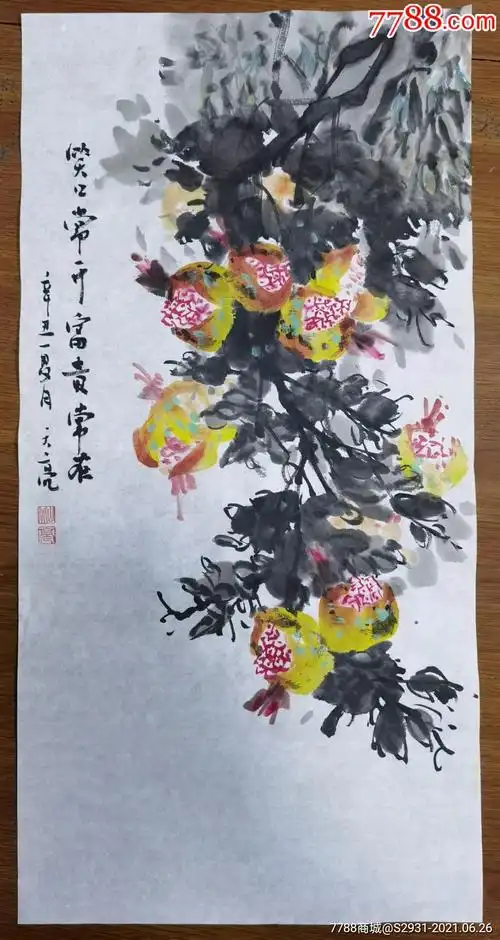 7788.com
笑口常开富贵常在
辛丑夏月天亮
7788商城@S2931-2021.06.26